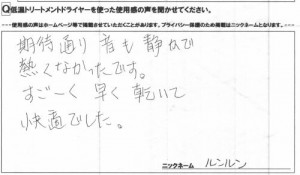 Q低温トリートメントドライヤーを使った使用感の声を聞かせてください。
使用感の声はホームページ等で掲載させていただくことがあります。プライバシー保護のため掲載はニックネームとなります。
期待通り 音も静かで
熱くなかったです。
すご〜く 早く 乾いて
快適でした。
ニックネーム ルンルン